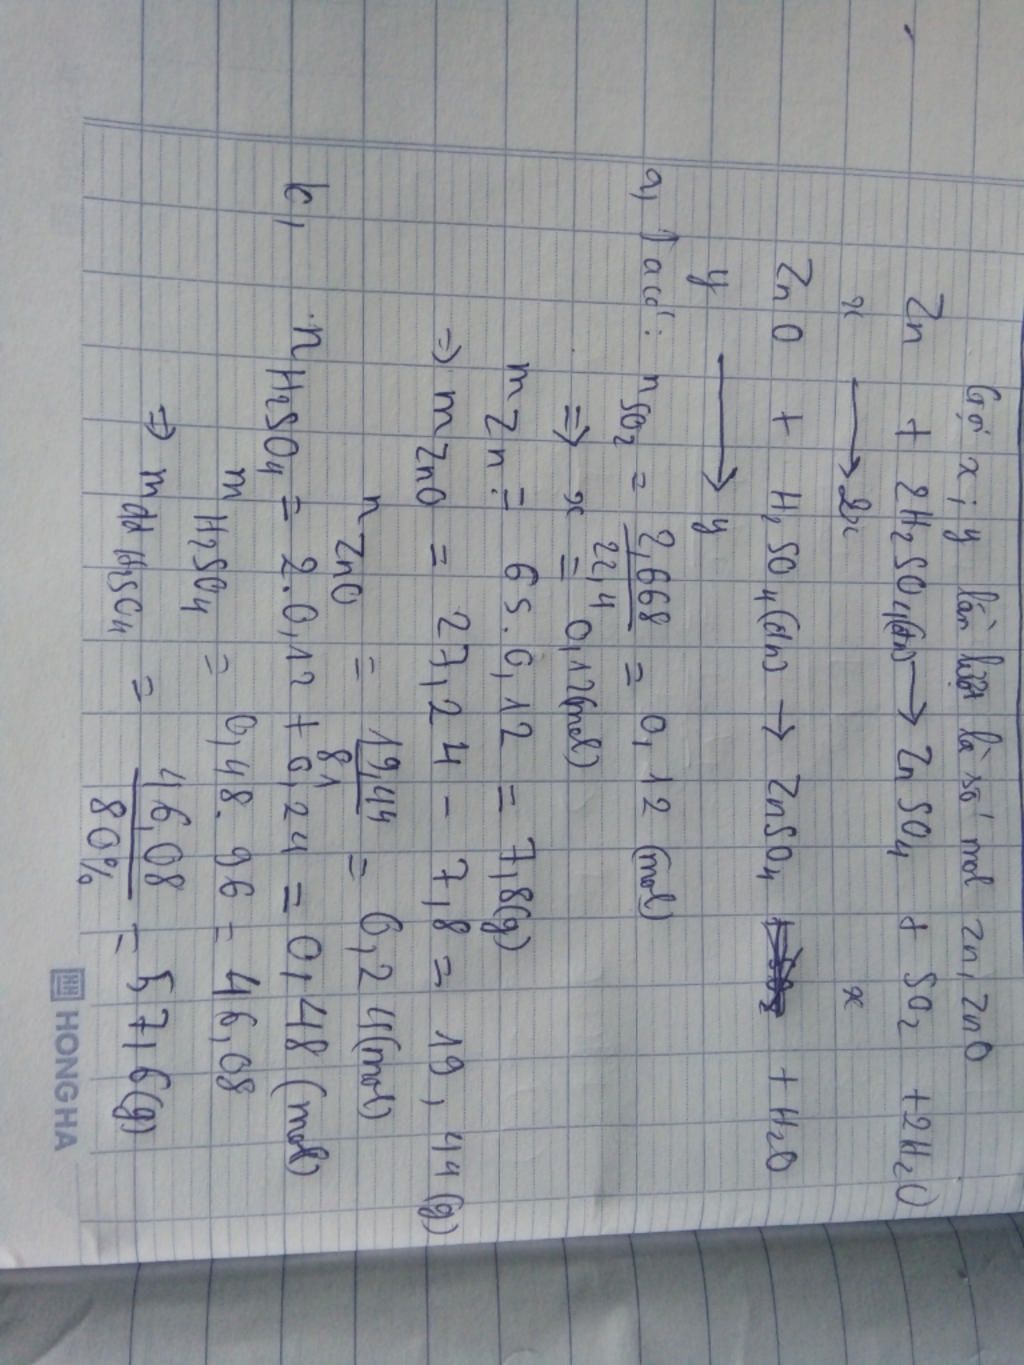 Gọi x; y lần lượt là số mol zn, ZnO
Zn + 2H₂SO₄(đn) → ZnSO₄ + SO₂ + 2H₂O
x → 2x x
ZnO + H₂SO₄(đn) → ZnSO₄ + H₂O
y → y
a, Ta có: nSO₂ = 2,668/22,4 = 0,12 (mol)
=> x = 0,12(mol)
mZn = 65.0,12 = 7,8(g)
=> mZnO = 27,24 - 7,8 = 19,44(g)
nZnO = 19,44/81 = 0,24(mol)
nH₂SO₄ = 2.0,12 + 0,24 = 0,48 (mol)
mH₂SO₄ = 0,48.96 = 46,08
=> mdd H₂SO₄ = 46,08/80% = 57,6(g)
HONG HA